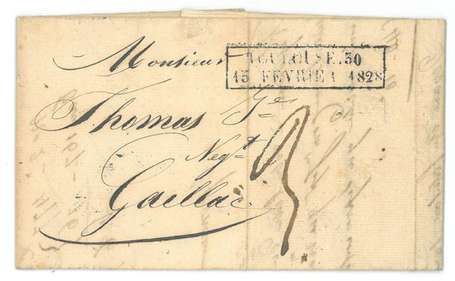 Monsieur
TOULOUSE.30
15 FEVRIER 1828
Thomas Je
Negt
Gaillac
3